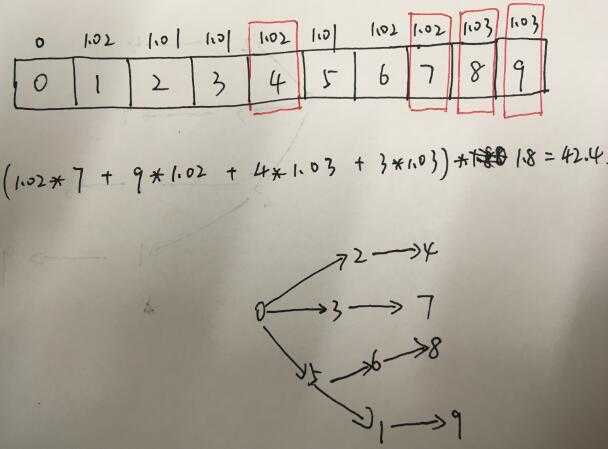 0 1.02 1.01 1.01 1.02 1.01 1.02 1.02 1.03 1.03
0 1 2 3 4 5 6 7 8 9
(1.02*7 + 9*1.02 + 4*1.03 + 3*1.03)* 1.8 = 42.4
2 4
0 3 7
5 6 8
1 9